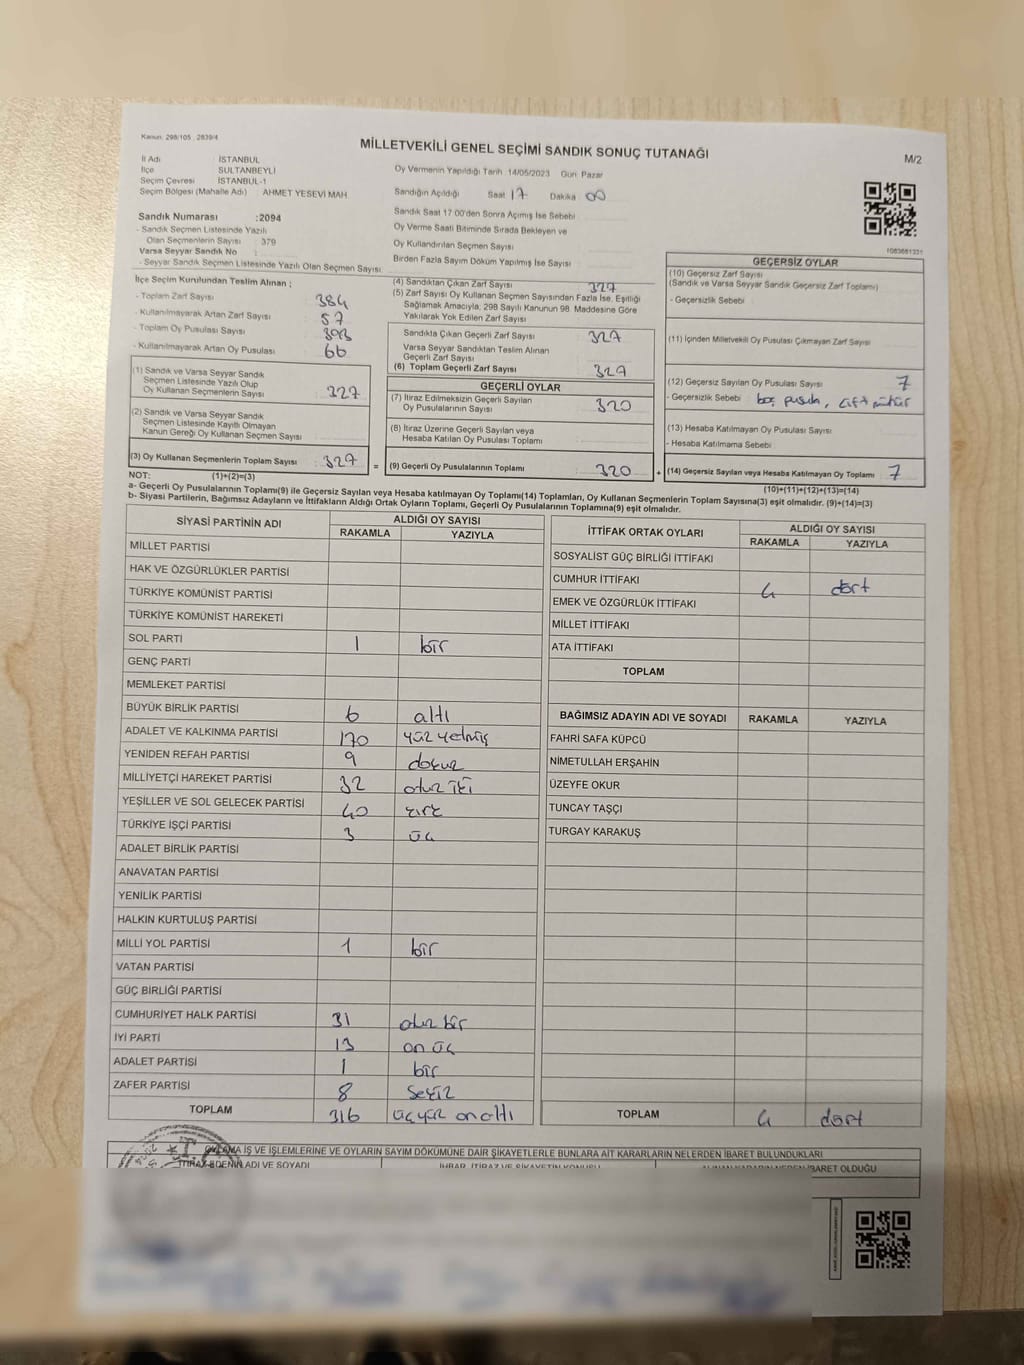 Kanun: 298/105 , 2839/4
MİLLETVEKİLİ GENEL SEÇİMİ SANDIK SONUÇ TUTANAĞI
M/2
İl Adı : İSTANBUL
İlçe : SULTANBEYLİ
Seçim Çevresi : İSTANBUL-1
Seçim Bölgesi (Mahalle Adı) : AHMET YESEVİ MAH
Oy Vermenin Yapıldığı Tarih 14/05/2023 Gün Pazar
Sandığın Açıldığı Saat 17 Dakika 00
Sandık Numarası :2094
- Sandık Seçmen Listesinde Yazılı
Olan Seçmenlerin Sayısı : 379
Varsa Seyyar Sandık No :
- Seyyar Sandık Seçmen Listesinde Yazılı Olan Seçmen Sayısı
Sandık Saat 17:00'den Sonra Açımış İse Sebebi
Oy Verme Saati Bitiminde Sırada Bekleyen ve
Oy Kullandırılan Seçmen Sayısı
Birden Fazla Sayım Döküm Yapılmış İse Sayısı
1083681331
İlçe Seçim Kurulundan Teslim Alınan ;
- Toplam Zarf Sayısı : 384
- Kullanılmayarak Artan Zarf Sayısı : 57
- Toplam Oy Pusulası Sayısı : 393
- Kullanılmayarak Artan Oy Pusulası : 66
(1) Sandık ve Varsa Seyyar Sandık
Seçmen Listesinde Yazılı Olup
Oy Kullanan Seçmenlerin Sayısı : 327
(2) Sandık ve Varsa Seyyar Sandık
Seçmen Listesinde Kayıtlı Olmayan
Kanun Gereği Oy Kullanan Seçmen Sayısı :
(3) Oy Kullanan Seçmenlerin Toplam Sayısı : 327
(1)+(2)=(3)
(4) Sandıktan Çıkan Zarf Sayısı : 327
(5) Zarf Sayısı Oy Kullanan Seçmen Sayısından Fazla İse, Eşitliği
Sağlamak Amacıyla, 298 Sayılı Kanunun 98. Maddesine Göre
Yakılarak Yok Edilen Zarf Sayısı
Sandıkta Çıkan Geçerli Zarf Sayısı : 327
Varsa Seyyar Sandıktan Teslim Alınan
Geçerli Zarf Sayısı
(6) Toplam Geçerli Zarf Sayısı : 327
GEÇERLİ OYLAR
(7) İtiraz Edilmeksizin Geçerli Sayılan
Oy Pusulalarının Sayısı : 320
(8) İtiraz Üzerine Geçerli Sayılan veya
Hesaba Katılan Oy Pusulası Toplamı
= (9) Geçerli Oy Pusulalarının Toplamı : 320
GEÇERSİZ OYLAR
(10) Geçersiz Zarf Sayısı
(Sandık ve Varsa Seyyar Sandık Geçersiz Zarf Toplamı)
- Geçersizlik Sebebi
(11) İçinden Milletvekili Oy Pusulası Çıkmayan Zarf Sayısı
(12) Geçersiz Sayılan Oy Pusulası Sayısı : 7
- Geçersizlik Sebebi boş pusula, çift mühür
(13) Hesaba Katılmayan Oy Pusulası Sayısı
- Hesaba Katılmama Sebebi
+ (14) Geçersiz Sayılan veya Hesaba Katılmayan Oy Toplamı : 7
(10)+(11)+(12)+(13)=(14)
NOT:
a- Geçerli Oy Pusulalarının Toplamı(9) ile Geçersiz Sayılan veya Hesaba katılmayan Oy Toplamı(14) Toplamları, Oy Kullanan Seçmenlerin Toplam Sayısına(3) eşit olmalıdır. (9)+(14)=(3)
b- Siyasi Partilerin, Bağımsız Adayların ve İttifakların Aldığı Ortak Oyların Toplamı, Geçerli Oy Pusulalarının Toplamına(9) eşit olmalıdır.
SİYASİ PARTİNİN ADI ALDIĞI OY SAYISI
RAKAMLA YAZIYLA
MİLLET PARTİSİ
HAK VE ÖZGÜRLÜKLER PARTİSİ
TÜRKİYE KOMÜNİST PARTİSİ
TÜRKİYE KOMÜNİST HAREKETİ
SOL PARTİ 1 bir
GENÇ PARTİ
MEMLEKET PARTİSİ
BÜYÜK BİRLİK PARTİSİ 6 altı
ADALET VE KALKINMA PARTİSİ 170 yüz yetmiş
YENİDEN REFAH PARTİSİ 9 dokuz
MİLLİYETÇİ HAREKET PARTİSİ 32 otuz iki
YEŞİLLER VE SOL GELECEK PARTİSİ 40 kırk
TÜRKİYE İŞÇİ PARTİSİ 3 üç
ADALET BİRLİK PARTİSİ
ANAVATAN PARTİSİ
YENİLİK PARTİSİ
HALKIN KURTULUŞ PARTİSİ
MİLLİ YOL PARTİSİ 1 bir
VATAN PARTİSİ
GÜÇ BİRLİĞİ PARTİSİ
CUMHURİYET HALK PARTİSİ 31 otuz bir
İYİ PARTİ 13 on üç
ADALET PARTİSİ 1 bir
ZAFER PARTİSİ 8 sekiz
TOPLAM 316 üçyüz on altı
İTTİFAK ORTAK OYLARI ALDIĞI OY SAYISI
RAKAMLA YAZIYLA
SOSYALİST GÜÇ BİRLİĞİ İTTİFAKI
CUMHUR İTTİFAKI 4 dört
EMEK VE ÖZGÜRLÜK İTTİFAKI
MİLLET İTTİFAKI
ATA İTTİFAKI
TOPLAM
BAĞIMSIZ ADAYIN ADI VE SOYADI RAKAMLA YAZIYLA
FAHRİ SAFA KÜPCÜ
NİMETULLAH ERŞAHİN
ÜZEYFE OKUR
TUNCAY TAŞÇI
TURGAY KARAKUŞ
TOPLAM 4 dört
OYLAMA İŞ VE İŞLEMLERİNE VE OYLARIN SAYIM DÖKÜMÜNE DAİR ŞİKAYETLERLE BUNLARA AİT KARARLARIN NELERDEN İBARET BULUNDUKLARI
İTİRAZ EDENİN ADI VE SOYADI